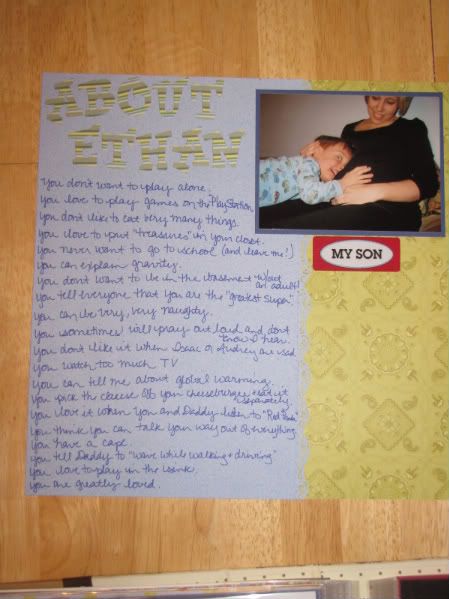 ABOUT
ETHAN
You don't want to play alone.
You love to play games on the PlayStation
You don't like to eat very many things.
You love to put "treasures" in your closet.
You never want to go to school (and leave me!)
You can explain gravity.
You don't want to be in the basement w/out
an adult!
You tell everyone that you are the "greatest super"
You can be very, very naughty.
You sometimes will pray out loud and don't
know I hear.
You don't like it when Isaac or Audrey are sad
You watch too much TV
You can tell me about global warming.
You pick the cheese off your cheeseburger + eat it
separately.
You love it when you and Daddy listen to "Red
You think you can talk your way out of everything
You have a cape.
You tell Daddy to "wave while walking + driving"
You love to play in the
You are greatly loved.
MY SON